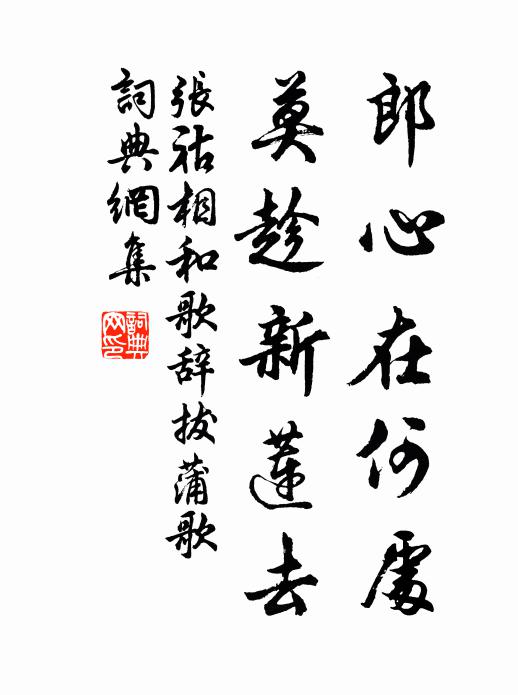 郎心在何處
莫趁新蓮去
張祜相和歌辞拔蒲歌
詞典網集
詞典
网印